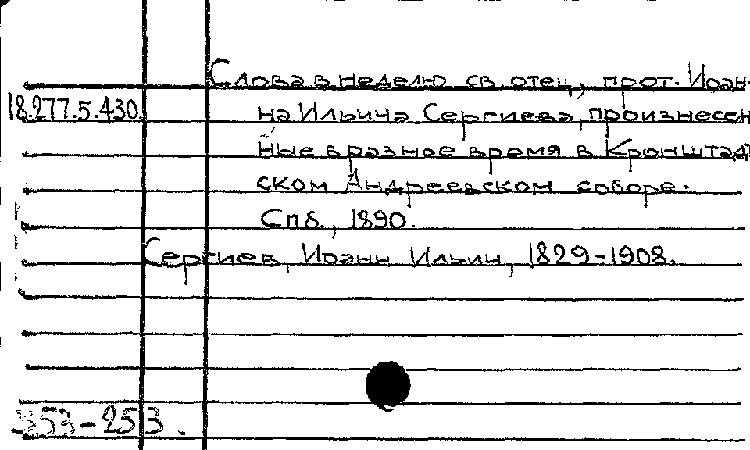 Слова в неделю св. отец, прот. Иоан-
18.277.5.430. на Ильича Сергиева, произнесен-
ные в разное время в Кронштадт
ском Андреевском соборе.
Спб., 1890.
Сергиев, Иоанн Ильич, 1829-1908.
353-253.